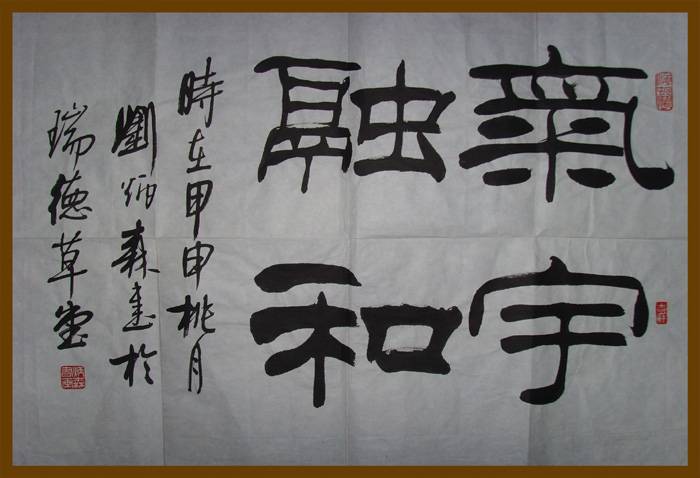 氣宇
融和
時在甲申桃月
劉炳森書於
瑞德草堂